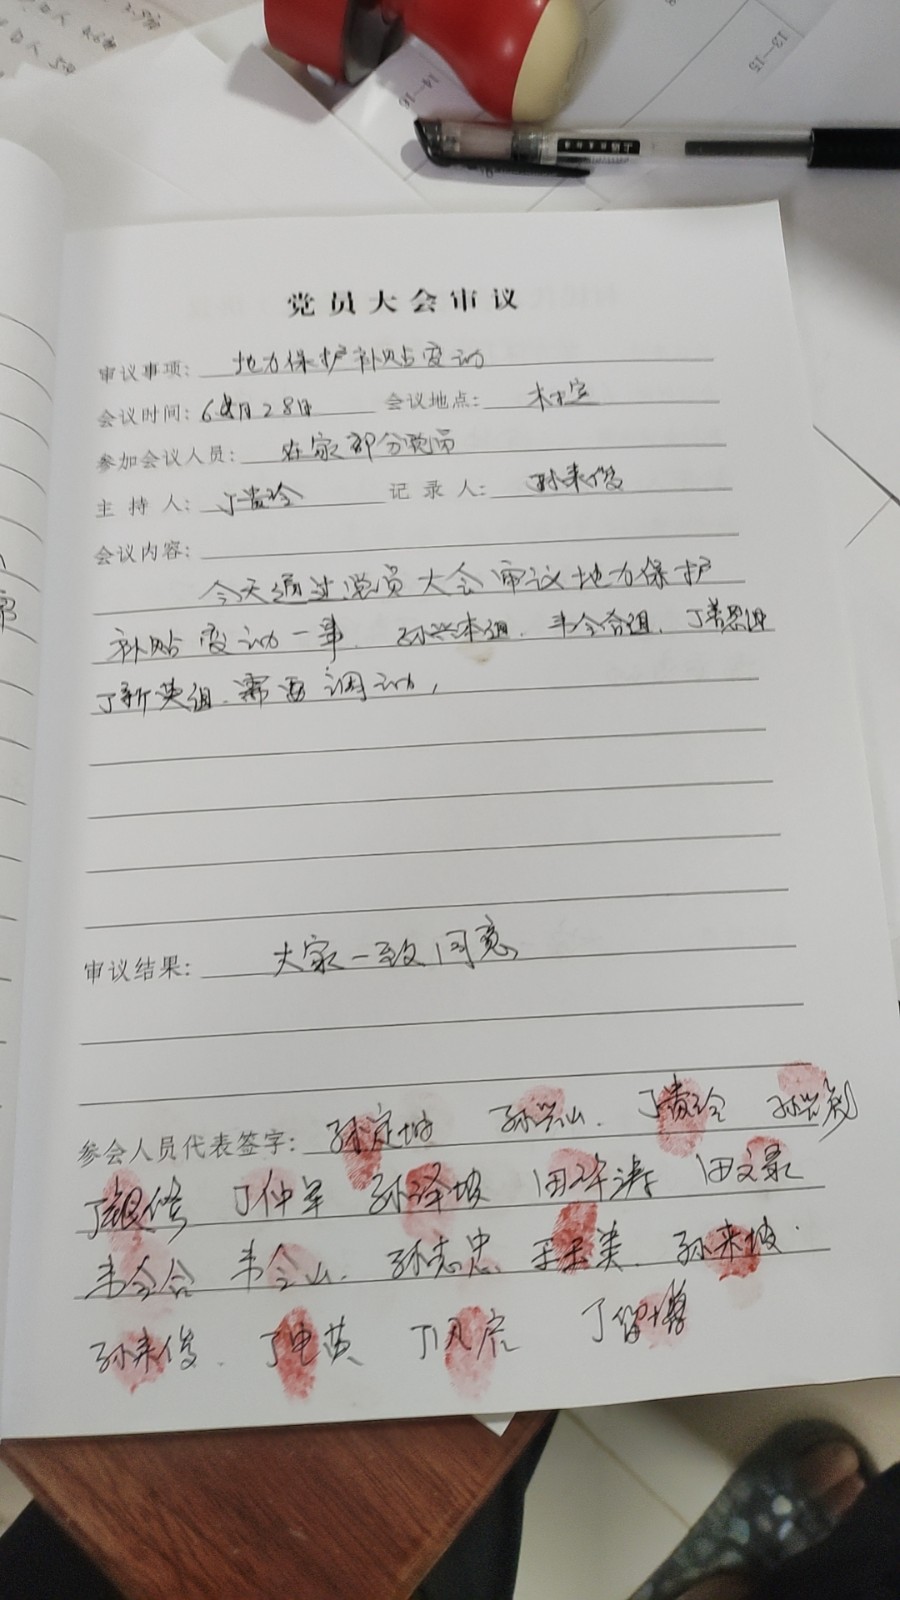 2.5亩
14—16
13—15
党员大会审议
审议事项: 地力保护补贴变动
会议时间: 6月28日 会议地点: 村室
参加会议人员: 在家部分党员
主持人: 丁贵玲 记录人: 孙来俊
会议内容:
今天通过党员大会审议地力保护
补贴变动一事、孙兴本组、韦全合组、丁秀思组
丁新英组、需要调动,
审议结果: 大家一致同意
参会人员代表签字: 孙定坡 孙兴山、丁贵玲
丁银修 丁仲军 孙泽坡 田文录
韦全合 韦全山、孙志忠 孙来坡
孙来俊、丁电英 丁凤启 丁留增